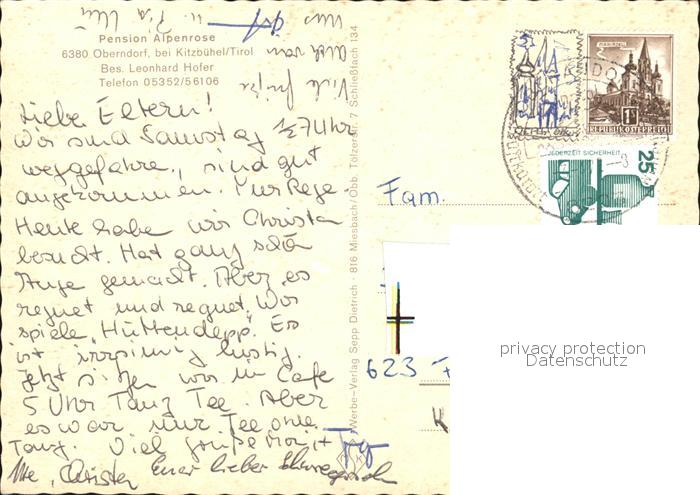 Pension Alpenrose
6380 Oberndorf, bei Kitzbühel/Tirol
Bes. Leonhard Hofer
Telefon 05352/56106
Liebe Eltern!
Wir sind Samstag ½7 Uhr
weggefahren, sind gut
angekommen. Nur Rege-
Heute haben wir Christa
besucht. Hat ganz schön
Auge gemacht. Aber es
regnet und regnet. Wir
spiele "Hüttendepp". Es
ist irrsinnig lustig.
Jetzt sitzen wir im Cafe
5 Uhr Tanz Tee. Aber
es war nur Tee ohne
Tanz. Viel Grüße Monit
Ute, Christen Euer lieber
Viele Grüße
auch von
uns
Werbe-Verlag Sepp Dietrich · 816 Miesbach/Obb. Tölzerstr. 7 Schließfach 134
REPUBLIK ÖSTERREICH
JEDERZEIT SICHERHEIT
25
Fam.
623 F
privacy protection
Datenschutz